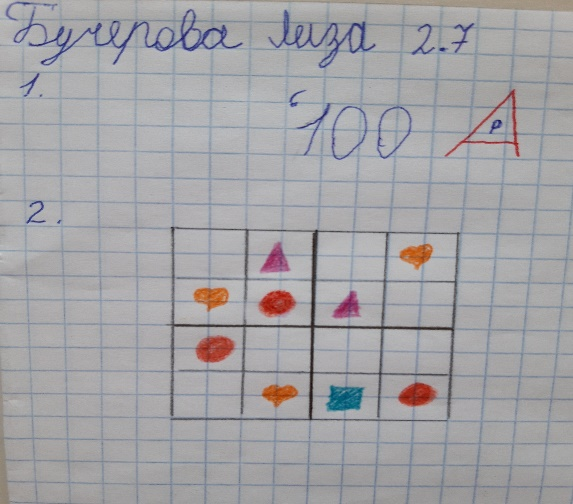 Бучерова Лиза 2.7
1.
‘100 А р
2.